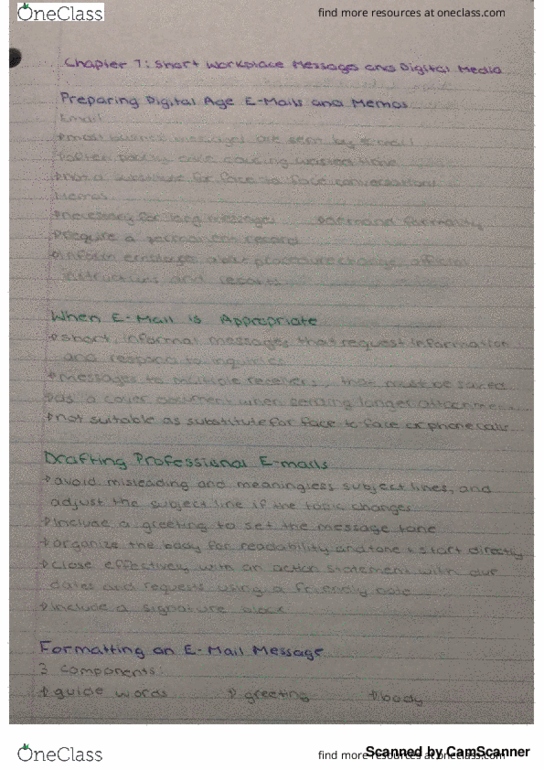 OneClass
find more resources at oneclass.com
Chapter 7: Short Workplace Messages and Digital Media
Preparing Digital Age E-Mails and Memos
Email
most business messages are sent by e-mail
often poorly causing wasted time
not a substitute for face to face conversations
Memos
necessary for long messages demand formality
require a permanent record
inform employees about procedure change, official
instructions and reports
When E-Mail is Appropriate
short, informal messages that request information
and respond to inquiries
messages to multiple receivers, that must be saved
as a cover document when sending longer attachments
not suitable as substitute for face to face or phone calls
Drafting Professional E-mails
avoid misleading and meaningless subject lines, and
adjust the subject line if the topic changes
include a greeting to set the message tone
organize the body for readability and tone & start directly
close effectively with an action statement with due
dates and requests using a friendly note
include a signature block
Formatting an E-Mail Message
3 components:
guide words greeting body
OneClass
find more resources at oneclass.com
Scanned by CamScanner